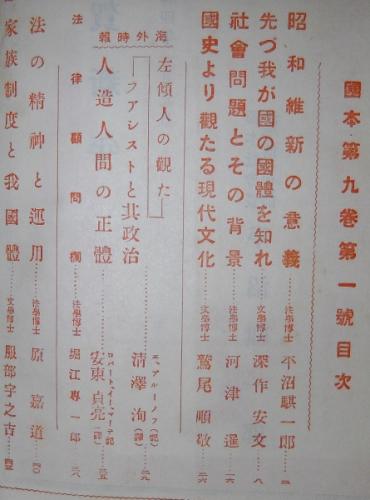 國本・第九卷第一號目次
昭和維新の意義……法學博士 平沼騏一郎…二
先づ我が國の國體を知れ……文學博士 深作安文…八
社會問題とその背景……法學博士 河津暹…一六
國史より觀たる現代文化……文學博士 鷲尾順敬…二六
海外時報
左傾人の觀た
ファシストと其政治……エ、アルーノフ(記) 清澤洵(譯)…二九
人造人間の正體……安東貞亮(譯)…三五
法律顧問欄……法學博士 堀江專一郎…三八
法の精神と運用……法學博士 原嘉道…四〇
家族制度と我國體……文學博士 服部宇之吉